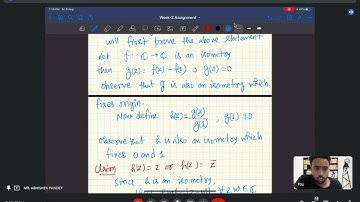 Week-2 Assignment
will first prove the above statement
Let f: ℂ→ℂ is an isometry
then g(z) = f(z) - f(0) ⇒ g(0) = 0
observe that g is also an isometry which
fixes origin.
Now define h(z) = g(z)/g(1) ; g(1) ≠ 0
observe that h is also an isometry which
fixes 0 and 1
Claim h(z) = z or h(z) = z̄
Since h is an isometry,
∀ z, w ∈ ℂ
You
MR. ABHISHEK PANDEY